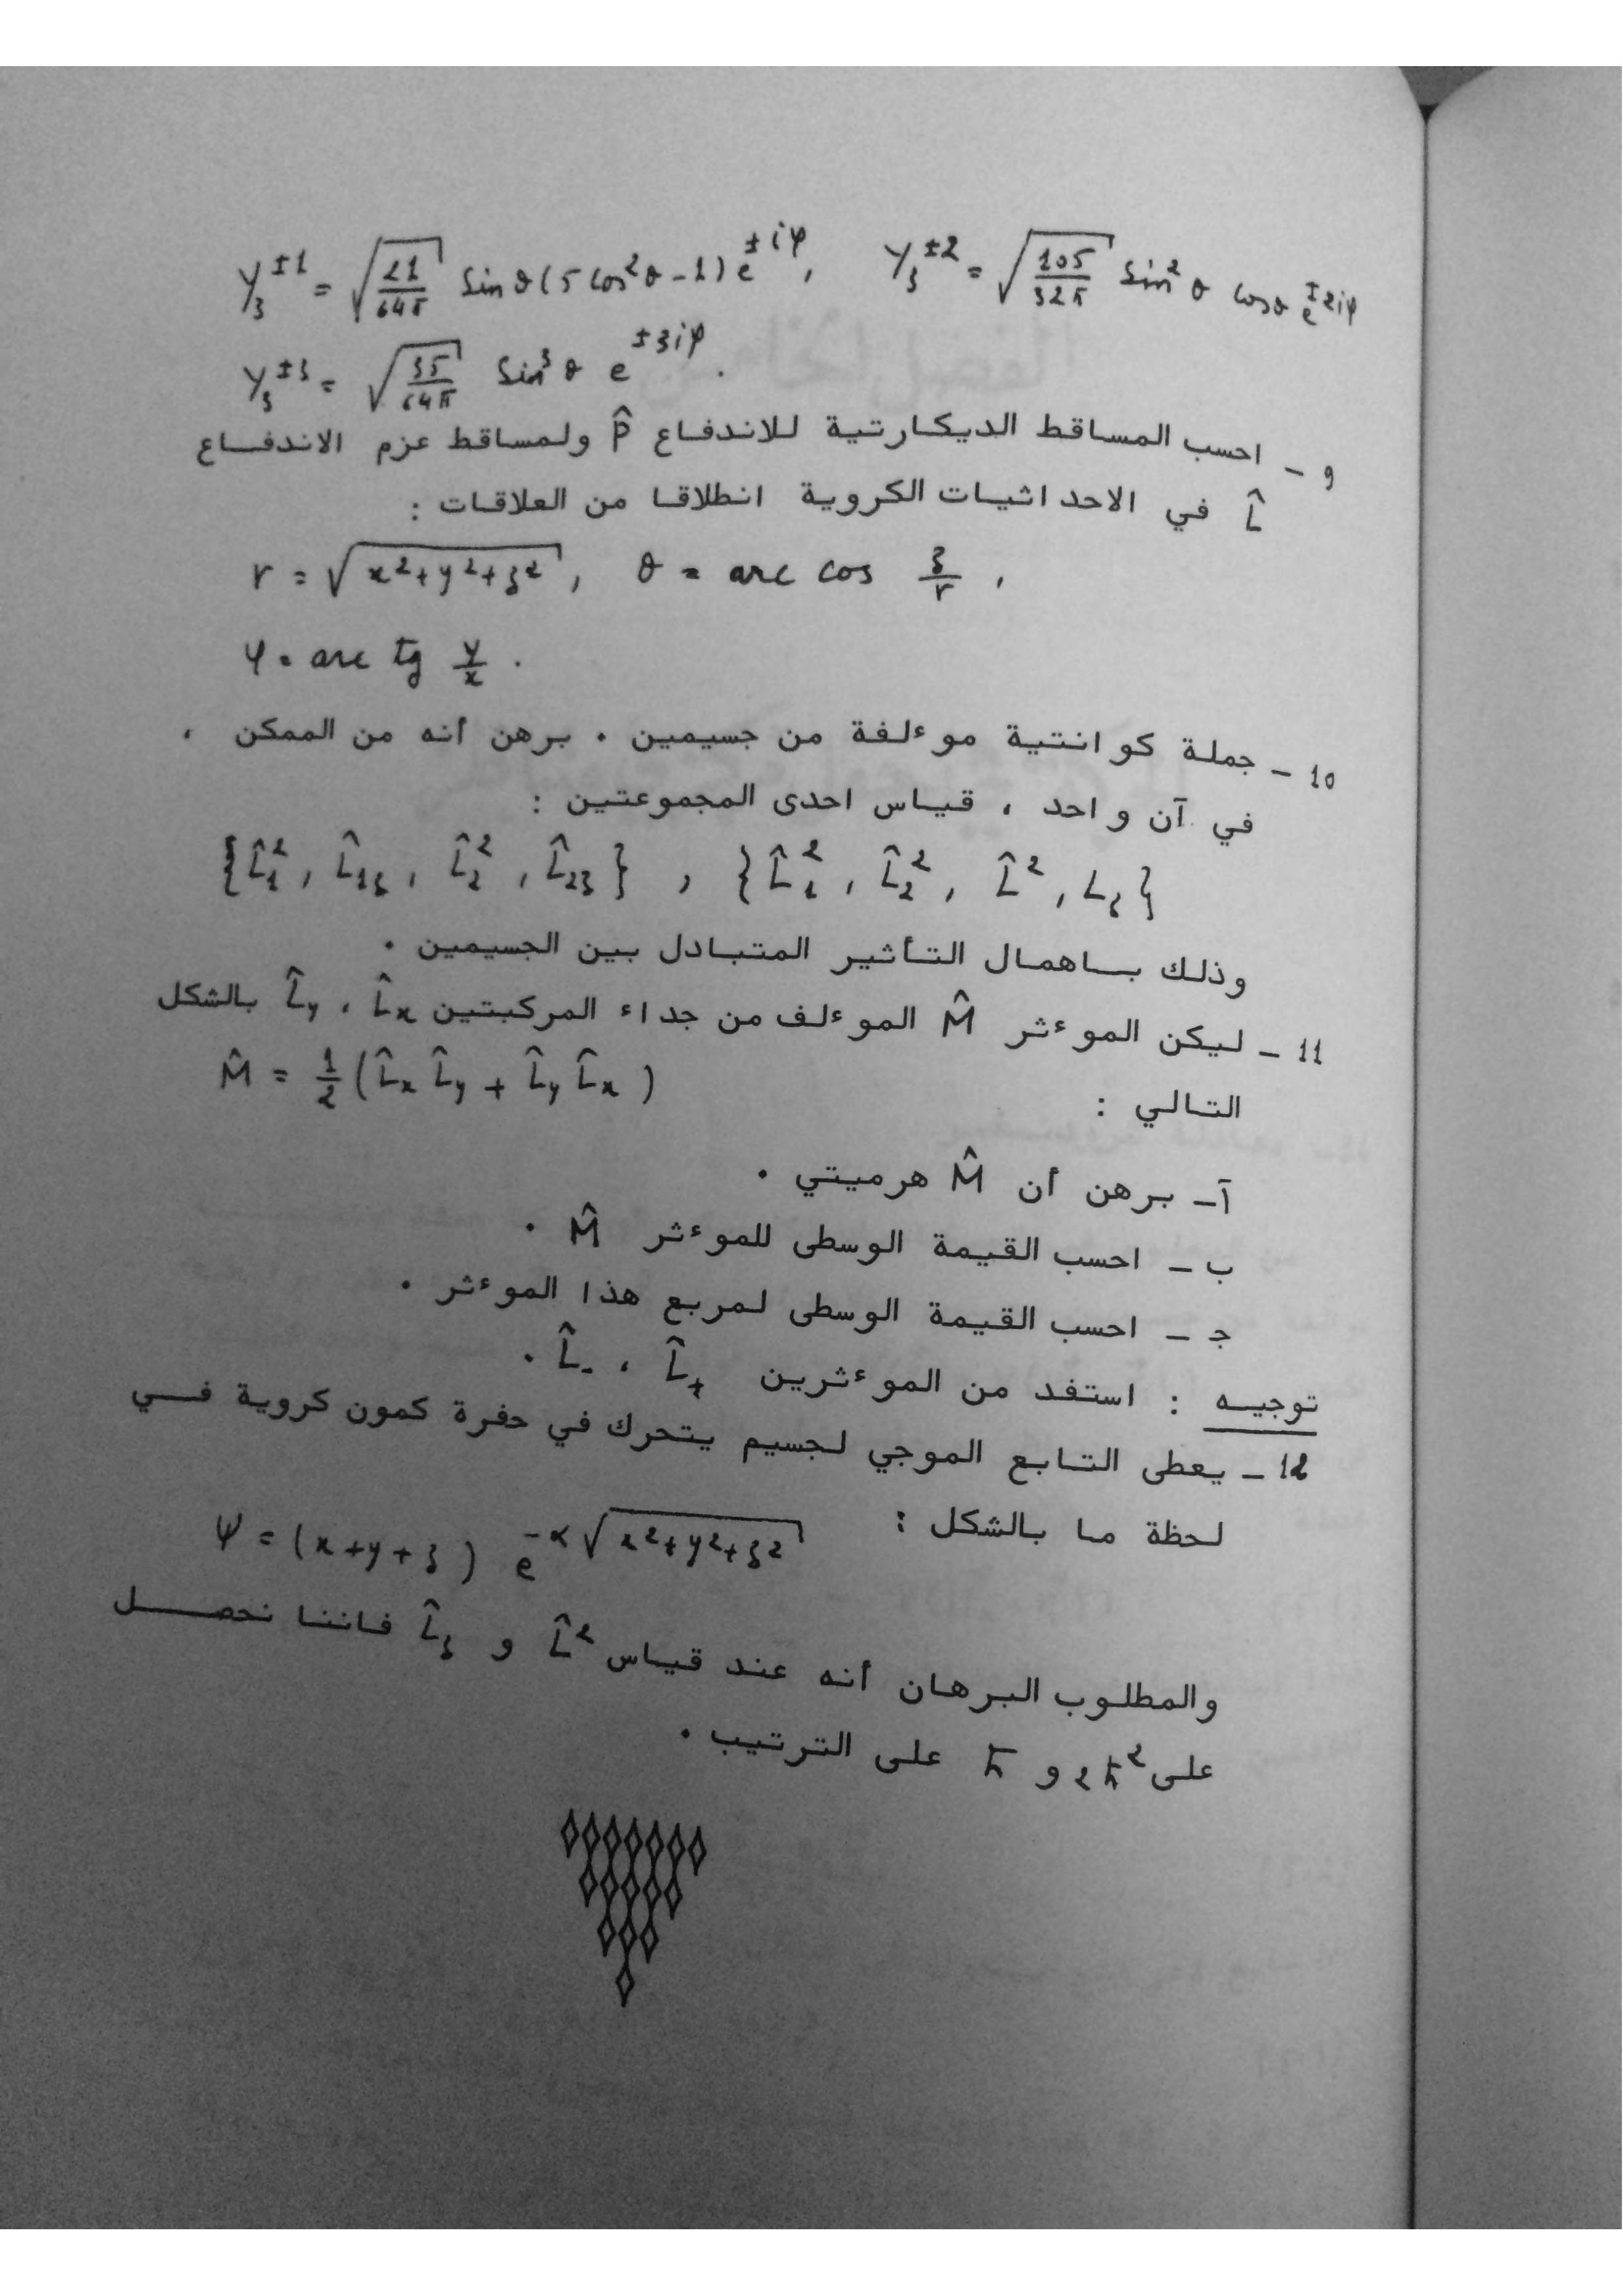 Y₃^{±1} = √(21/64π) Sin θ (5 Cos²θ - 1) e^{±iφ} , Y₃^{±2} = √(105/32π) Sin²θ Cosθ e^{±2iφ}
Y₃^{±3} = √(35/64π) Sin³θ e^{±3iφ} .
9 - احسب المساقط الديكارتية للاندفاع P̂ ولمساقط عزم الاندفاع
L̂ في الاحداثيات الكروية انطلاقا من العلاقات :
r = √(x²+y²+z²) , θ = arc cos z/r ,
φ = arc tg y/x .
10 - جملة كوانتية موءلفة من جسيمين . برهن أنه من الممكن ،
في آن واحد ، قياس احدى المجموعتين :
{L̂₁², L̂₁z, L̂₂², L̂₂z} , {L̂₁², L̂₂², L̂², Lz}
وذلك باهمال التأثير المتبادل بين الجسيمين .
11 - ليكن الموءثر M̂ الموءلف من جداء المركبتين L̂x ، L̂y بالشكل
التالي : M̂ = 1/2 (L̂x L̂y + L̂y L̂x)
آ - برهن أن M̂ هرميتي .
ب - احسب القيمة الوسطى للموءثر M̂ .
ج - احسب القيمة الوسطى لمربع هذا الموءثر .
توجيه : استفد من الموءثرين L̂₊ ، L̂₋ .
12 - يعطى التابع الموجي لجسيم يتحرك في حفرة كمون كروية في
لحظة ما بالشكل : ψ = (x+y+z) e^{-α√(x²+y²+z²)}
والمطلوب البرهان أنه عند قياس L̂² و L̂z فاننا نحصل
على 2ħ² و ħ على الترتيب .